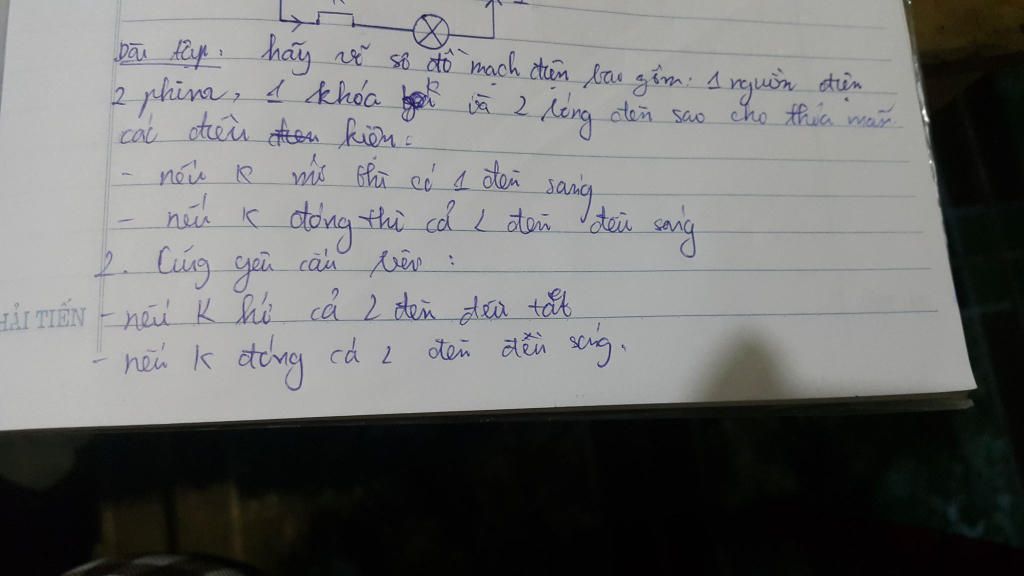 K
Bài tập: hãy vẽ sơ đồ mạch điện bao gồm: 1 nguồn điện
2 phin, 1 khóa K và 2 bóng đèn sao cho thỏa mãn
các điều kiện:
- nếu K mở thì có 1 đèn sáng
- nếu K đóng thì cả 2 đèn đều sáng
2. Cũng yêu cầu trên:
- nếu K hở cả 2 đèn đều tắt
HẢI TIẾN
- nếu K đóng cả 2 đèn đều sáng.